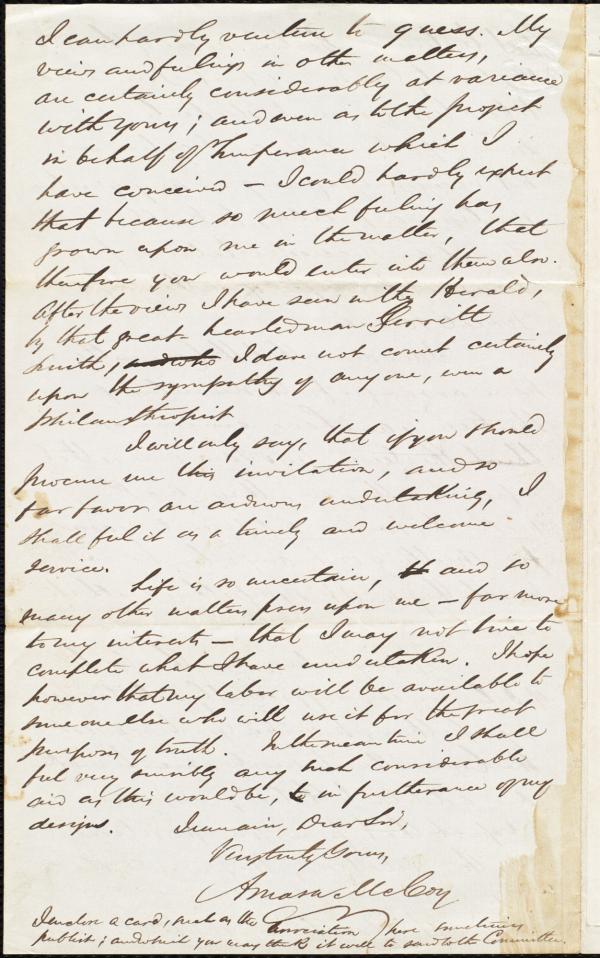 I can hardly venture to guess. My
views and feelings in other matters,
are certainly considerably at variance
with yours; and even as to the project
in behalf of Temperance which I
have conceived — I could hardly expect
that because so much feeling has
grown upon me in the matter, that
therefore you would enter into them also.
After the views I have seen in the Herald,
by that great-hearted man Gerritt
Smith, and who I dare not count certainly
upon the sympathy of any one, even a
philanthropist
I will only say, that if you should
procure me this invitation, and so
far favor an arduous undertaking, I
shall feel it as a timely and welcome
service.
Life is so uncertain, and so
many other matters press upon me — far more
to my interests — that I may not live to
complete what I have undertaken. I hope
however that my labor will be available to
some one else who will use it for the great
purposes of truth. In the meantime I shall
feel very sensibly any such considerable
aid as this would be, to in furtherance of my
designs. I remain, Dear Sir,
Very truly Yours,
Amasa McCoy
I enclose a card, such as the Association here sometimes
publish; and which you may think it well to send to the Committee.